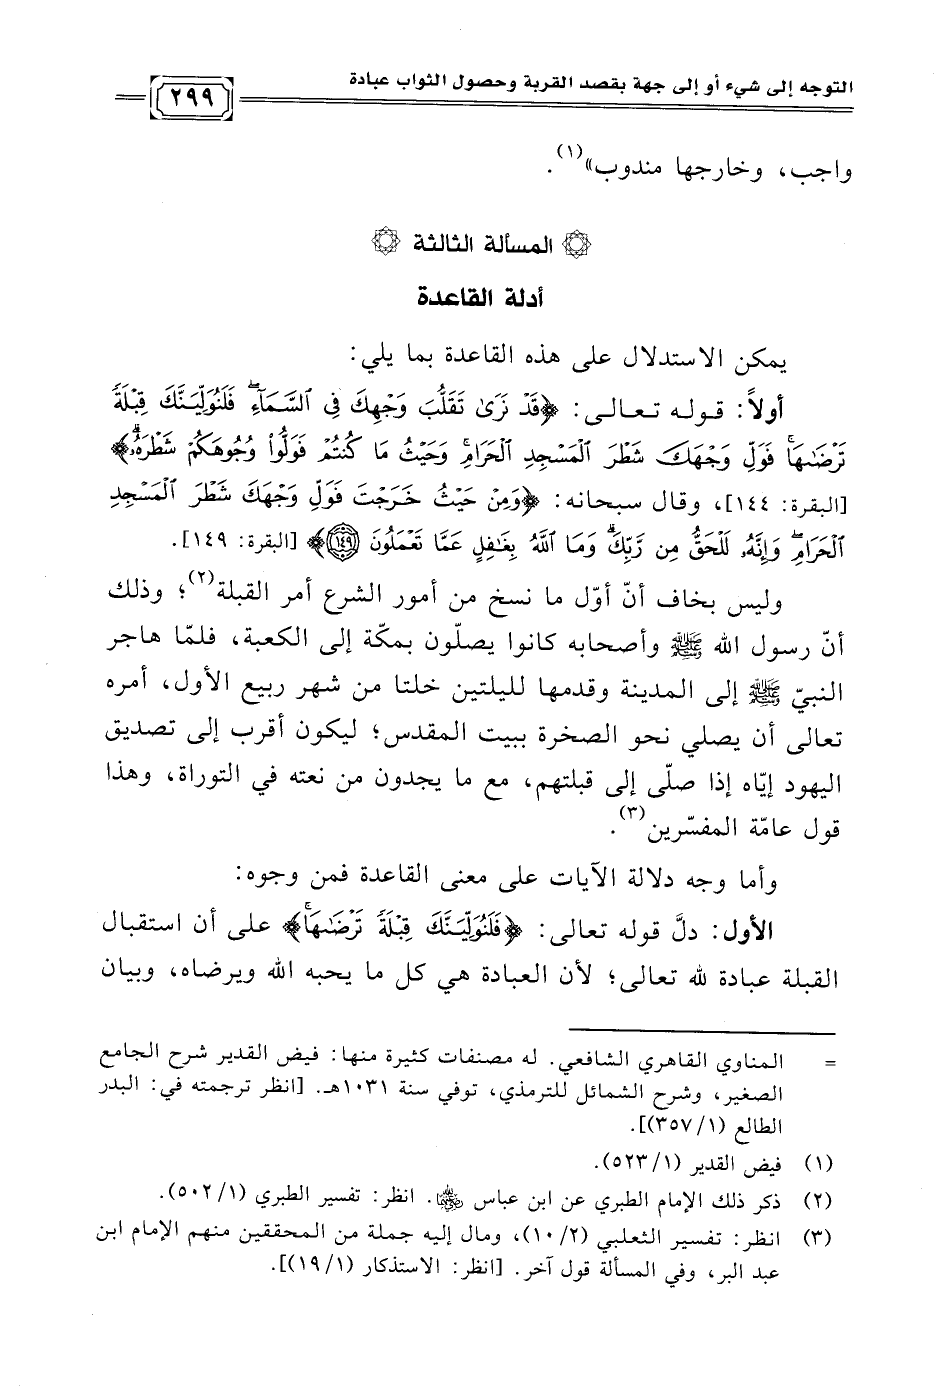 التوجه إلى شيء أو إلى جهة بقصد القربة وحصول الثواب عبادة
٢٩٩
واجب، وخارجها مندوب»(١).
المسألة الثالثة
أدلة القاعدة
يمكن الاستدلال على هذه القاعدة بما يلي:
أولاً: قوله تعالى: ﴿قَدْ نَرَىٰ تَقَلُّبَ وَجْهِكَ فِي السَّمَآءِ ۖ فَلَنُوَلِّيَنَّكَ قِبْلَةً
تَرْضَىٰهَا ۚ فَوَلِّ وَجْهَكَ شَطْرَ الْمَسْجِدِ الْحَرَامِ ۚ وَحَيْثُ مَا كُنتُمْ فَوَلُّوا۟ وُجُوهَكُمْ شَطْرَهُۥ ۗ﴾
[البقرة: ١٤٤]، وقال سبحانه: ﴿وَمِنْ حَيْثُ خَرَجْتَ فَوَلِّ وَجْهَكَ شَطْرَ الْمَسْجِدِ
الْحَرَامِ ۖ وَإِنَّهُۥ لَلْحَقُّ مِن رَّبِّكَ ۗ وَمَا اللَّهُ بِغَٰفِلٍ عَمَّا تَعْمَلُونَ ١٤٩﴾ [البقرة: ١٤٩].
وليس بخاف أنّ أوّل ما نسخ من أمور الشرع أمر القبلة(٢)؛ وذلك
أنّ رسول الله ﷺ وأصحابه كانوا يصلّون بمكّة إلى الكعبة، فلمّا هاجر
النبيّ ﷺ إلى المدينة وقدمها لليلتين خلتا من شهر ربيع الأول، أمره
تعالى أن يصلي نحو الصخرة ببيت المقدس؛ ليكون أقرب إلى تصديق
اليهود إيّاه إذا صلّى إلى قبلتهم، مع ما يجدون من نعته في التوراة، وهذا
قول عامّة المفسّرين(٣).
وأما وجه دلالة الآيات على معنى القاعدة فمن وجوه:
الأول: دلَّ قوله تعالى: ﴿فَلَنُوَلِّيَنَّكَ قِبْلَةً تَرْضَىٰهَا ۚ﴾ على أن استقبال
القبلة عبادة لله تعالى؛ لأن العبادة هي كل ما يحبه الله ويرضاه، وبيان
= المناوي القاهري الشافعي. له مصنفات كثيرة منها: فيض القدير شرح الجامع
الصغير، وشرح الشمائل للترمذي، توفي سنة ١٠٣١هـ. [انظر ترجمته في: البدر
الطالع (٣٥٧/١)].
(١) فيض القدير (٥٢٣/١).
(٢) ذكر ذلك الإمام الطبري عن ابن عباس رضي الله عنهما. انظر: تفسير الطبري (٥٠٢/١).
(٣) انظر: تفسير الثعلبي (١٠/٢)، ومال إليه جملة من المحققين منهم الإمام ابن
عبد البر، وفي المسألة قول آخر. [انظر: الاستذكار (١٩/١)].